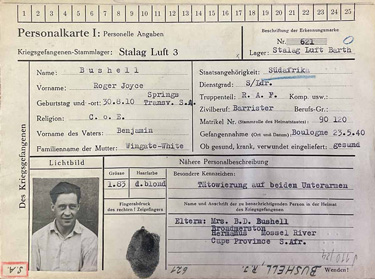 1 2 3 4 5 6 7 8 9 10 11 12 13 14 15 16 17 18 19 20 21 22 23 24 25
Personalkarte I: Personelle Angaben
Beschriftung der Erkennungsmarke
Nr. 621
Kriegsgefangenen-Stammlager: Stalag Luft 3
Lager: Stalag Luft Barth
Des Kriegsgefangenen
Name: Bushell
Staatsangehörigkeit: Südafrika
Vorname: Roger Joyce
Dienstgrad: S/Ldr.
Geburtstag und -ort: 30.8.10 Springs Transv. S.A.
Truppenteil: R.A.F. Komp. usw.:
Religion: C. o E.
Zivilberuf: Barrister Berufs-Gr.:
Vorname des Vaters: Benjamin
Matrikel Nr. (Stammrolle des Heimatstaates): 90 120
Familienname der Mutter: Wingate-White
Gefangennahme (Ort und Datum): Boulogne 23.5.40
Ob gesund, krank, verwundet eingeliefert: gesund
Lichtbild
Nähere Personalbeschreibung
Grösse Haarfarbe
Besondere Kennzeichen:
1.83 d.blond
Tätowierung auf beiden Unterarmen
Fingerabdruck
des rechten! Zeigefingers
Name und Anschrift der zu benachrichtigenden Person in der Heimat
des Kriegsgefangenen
Eltern: Mrs. B.D. Bushell
Hermanus Mossel River
Cape Province S.Afr.
S.A.
621
BUSHELL, R.J.
Wenden!